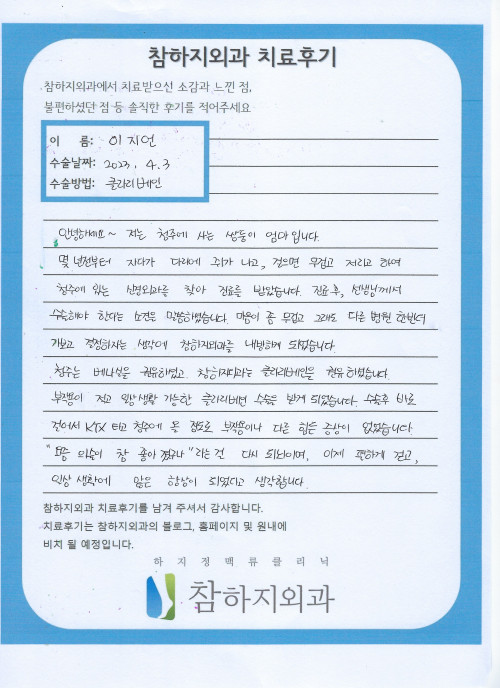 참하지외과 치료후기
참하지외과에서 치료받으선 소감과 느낀 점,
불편하셨던 점 등 솔직한 후기를 적어주세요
이 름: 이지언
수술날짜: 2023. 4.3
수술방법: 클라리베인
안녕하세요~ 저는 청주에 사는 쌍둥이 엄마입니다.
몇 년전부터 자다가 다리에 쥐가 나고, 걸으면 무겁고 저리고 하여
청주에 있는 외과를 찾아 진료를 받았습니다. 진료 후, 선생님께서
수술해야 한다는 소견을 말씀하셨습니다. 마음이 좀 무겁고 그래도 다른 병원 한번더
가보고 결정하자는 생각에 참하지외과를 내원하게 되었습니다.
청주는 베나실을 권유하였고, 참하지외과는 클라리베인을 권유하셨습니다.
부작용이 적고 일상생활 가능한 클라리베인 수술을 받게 되었습니다. 수술후 바로
걸어서 KTX 타고 청주에 올 정도로 부작용이나 다른 힘든 증상이 없었습니다.
"요즘 의술이 참 좋아졌구나" 라는 걸 다시 되뇌이며, 이제 편하게 걷고,
일상 생활에 많은 향상이 되었다고 생각합니다.
참하지외과 치료후기를 남겨 주셔서 감사합니다.
치료후기는 참하지외과의 블로그, 홈페이지 및 원내에
비치 될 예정입니다.
하지정맥류클리닉
참하지외과